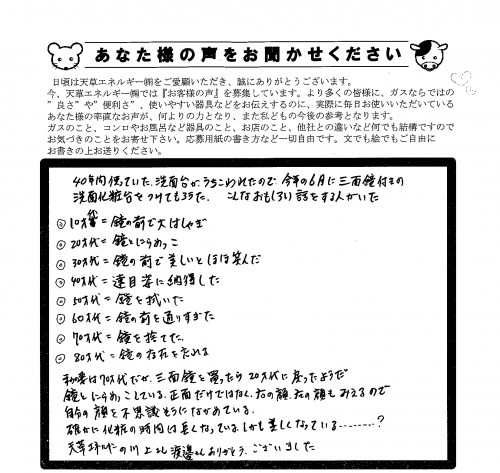 あなた様の声をお聞かせください
日頃は天草エネルギー㈱をご愛顧いただき、誠にありがとうございます。
今、天草エネルギー㈱では『お客様の声』を募集しています。より多くの皆様に、ガスならではの
”良さ”や”便利さ”、使いやすい器具などをお伝えするのに、実際に毎日お使いいただいている
あなた様の率直なお声が、何よりの力となり、また私どもの今後の参考となります。
ガスのこと、コンロやお風呂など器具のこと、お店のこと、他社との違いなど何でも結構ですので
お気づきのことをお寄せ下さい。応募用紙の書き方など一切自由です。文でも絵でもご自由に
お書きの上お送りください。
40年間使っていた洗面台がうちこわれたので 今年の6月に三面鏡付きの
洗面化粧台をつけてもろうた。 こんなおもしろい話をする人がいた
◎10才代=鏡の前で大はしゃぎ
◎20才代=鏡とにらめっこ
◎30才代=鏡の前で美しいとほほ笑んだ
◎40才代=遠目姿に納得した
◎50才代=鏡を拭いた
◎60才代=鏡の前を通りすぎた
◎70才代=鏡を捨てた
◎80才代=鏡の存在を忘れる
我妻は70才代だが、三面鏡を買ったら20才代に戻ったようだ
鏡とにらめっこしている。正面だけではなく、右の顔、左の顔もみえるので
自分の顔を不思議そうにながめている。
確かに化粧の時間は長くなっている。しかも美しくなっている………?
天草エネルギーの川上さん 渡邉さんありがとう。ございました